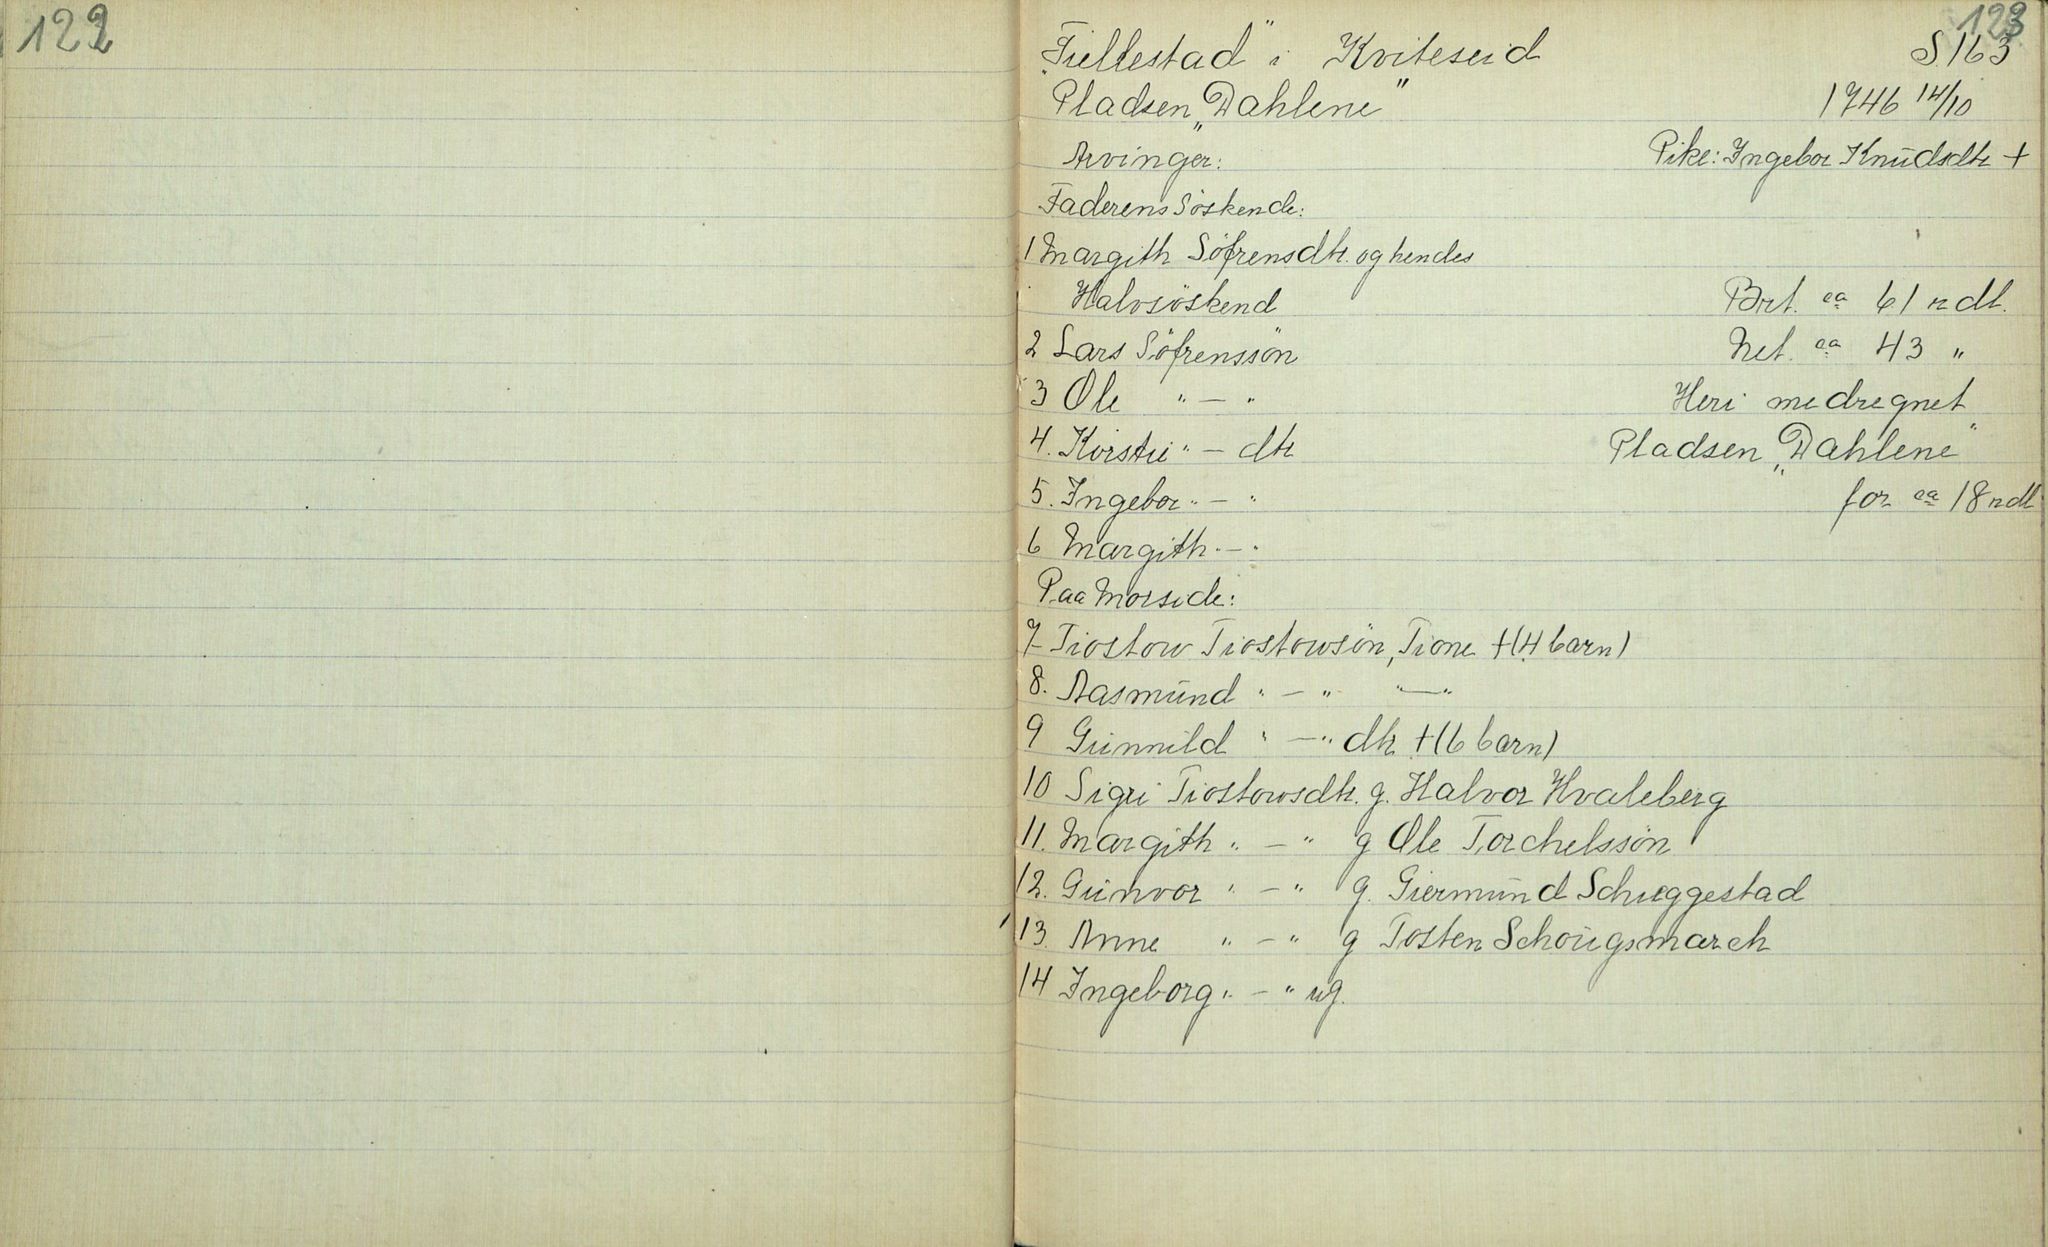 122
123
"Fiellestad" i Kviteseid S. 163
Pladsen „Dahlene" 1746 14/10
Arvinger: Pike: Ingebor Knudsdtr +
Faderens Söskende:
1 Margith Söfrensdtr. og hendes
Halvsöskend Brt. ca 61 rdl.
2 Lars Söfrenssön Net. ca 43 "
3 Ole " — " Heri medregnet
4. Kirstie " — dtr Pladsen „Dahlene"
5. Ingebor " — " for ca 18 rdl
6 Margith " — "
Paa Morside:
7 Tiostow Tiostowsön, Tione + (4 barn)
8. Aasmund " — " " — "
9 Gunnild " — " dtr + (6 barn)
10 Sigri Tiostowsdtr. g. Halvor Hvaleberg
11. Margith " — " g Ole Torchelssön
12. Gunvor " — " g. Giermund Schreggestad
13. Anne " — " g Tosten Schougsmarch
14 Ingeborg " — " ug.